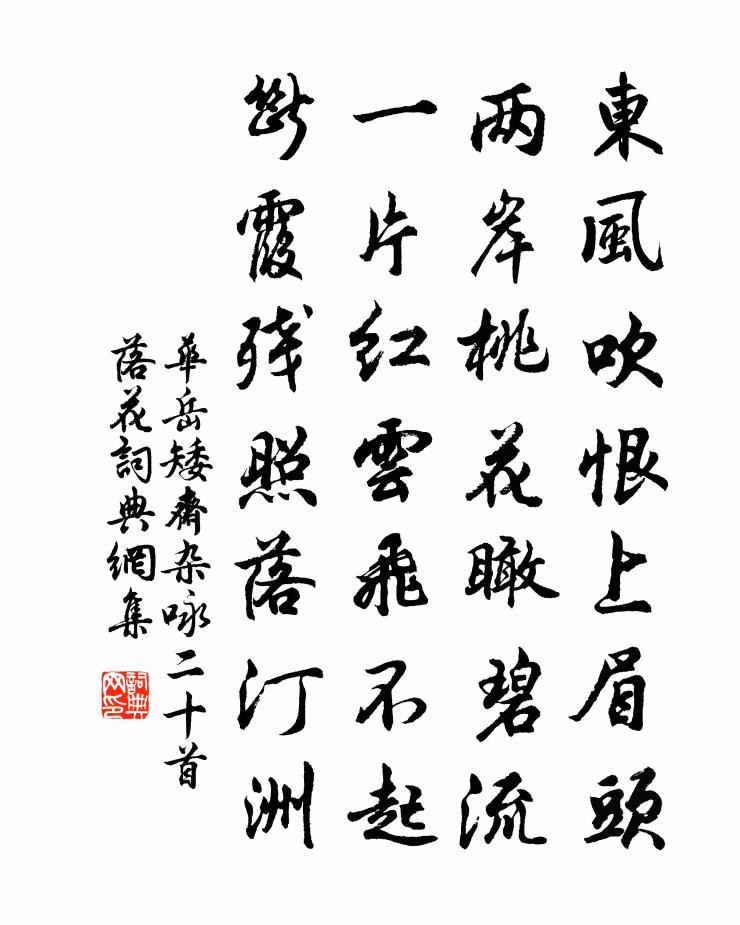 東風吹恨上眉頭
两岸桃花瞰碧流
一片红雲飛不起
斷霞残照落汀洲
華岳矮齋杂咏二十首
落花詞典網集
詞典网印